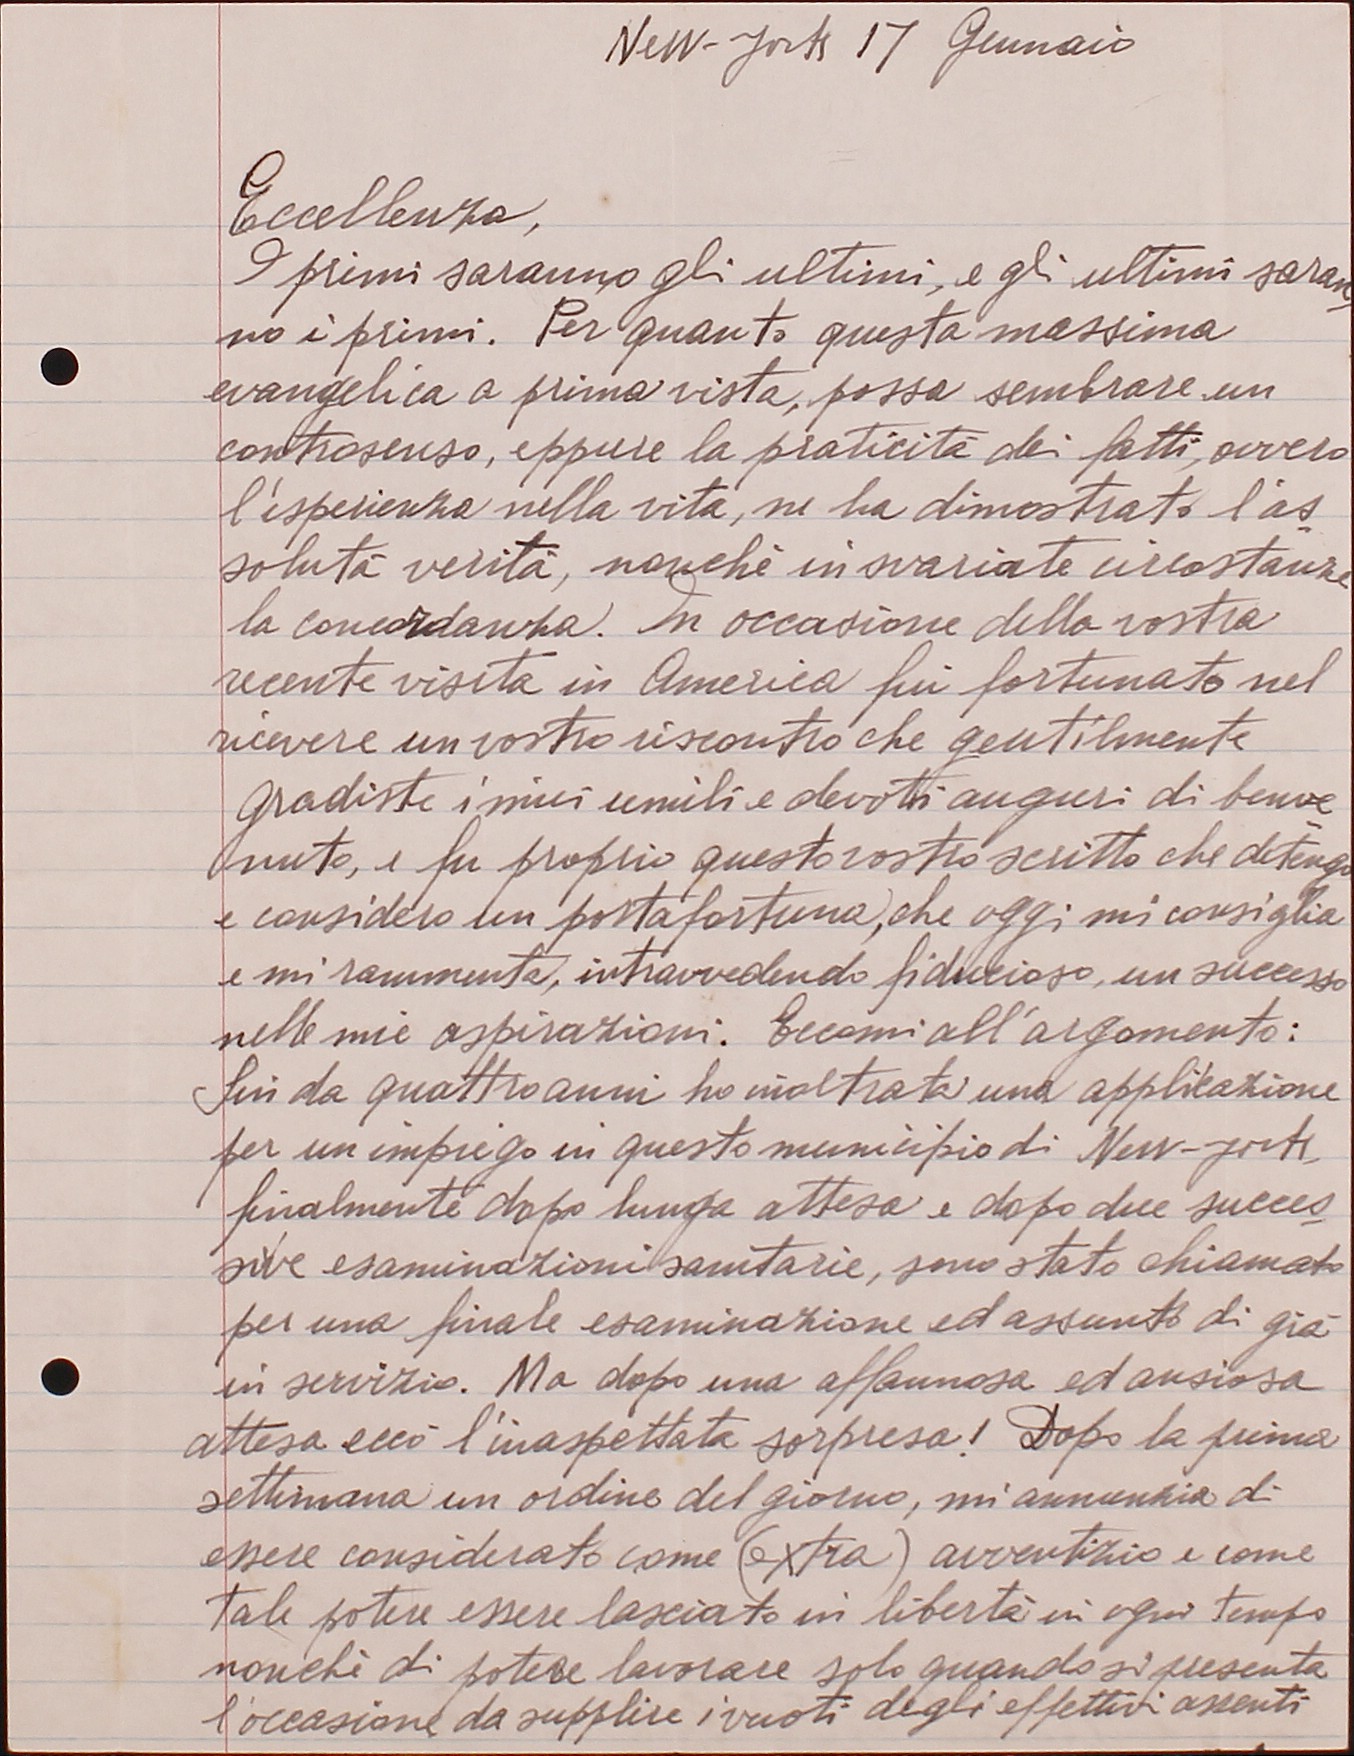 New-York 17 Gennaio
Eccellenza,
I primi saranno gli ultimi, e gli ultimi saran
no i primi. Per quanto questa massima
evangelica a prima vista, possa sembrare un
controsenso, eppure la praticità dei fatti, ovvero
l'esperienza nella vita, ne ha dimostrato l'as
soluta verità, nonchè in svariate circostanze
la concordanza. In occasione della vostra
recente visita in America fui fortunato nel
ricevere un vostro riscontro che gentilmente
gradiste i miei umili e devoti auguri di benve
nuto, e fu proprio questo vostro scritto che detengo
e considero un portafortuna, che oggi mi consiglia
e mi rammenta, intravvedendo fiducioso, un successo
nelle mie aspirazioni. Eccomi all'argomento:
fin da quattro anni ho inoltrata una applicazione
per un impiego in questo municipio di New-York,
finalmente dopo lunga attesa e dopo due succes
sive esaminazioni sanitarie, sono stato chiamato
per una finale esaminazione ed assunto di già
in servizio. Ma dopo una affannosa ed ansiosa
attesa ecco l'inaspettata sorpresa! Dopo la prima
settimana un ordine del giorno, mi annunzia di
essere considerato come (extra) avventizio e come
tale potere essere lasciato in libertà in ogni tempo
nonchè di potere lavorare solo quando si presenta
l'occasione da supplire i vuoti degli effettivi assenti